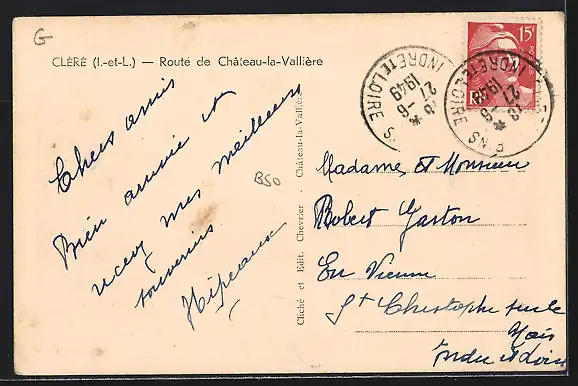 G
CLÉRÉ (I.-et-L.) — Route de Château-la-Vallière
Chers amis
Bien arrivée et
recevez mes meilleurs
souvenirs
B50
Cliché et Edit. Chevrier - Château-la-Vallière
15F
RF
INDRE ET LOIRE
18
27-6
1949
INDRE ET LOIRE
18
27-6
1949
Madame et Monsieur
Robert Gaston
En Vienne
St Christophe sur le
Nais
Indre et Loire